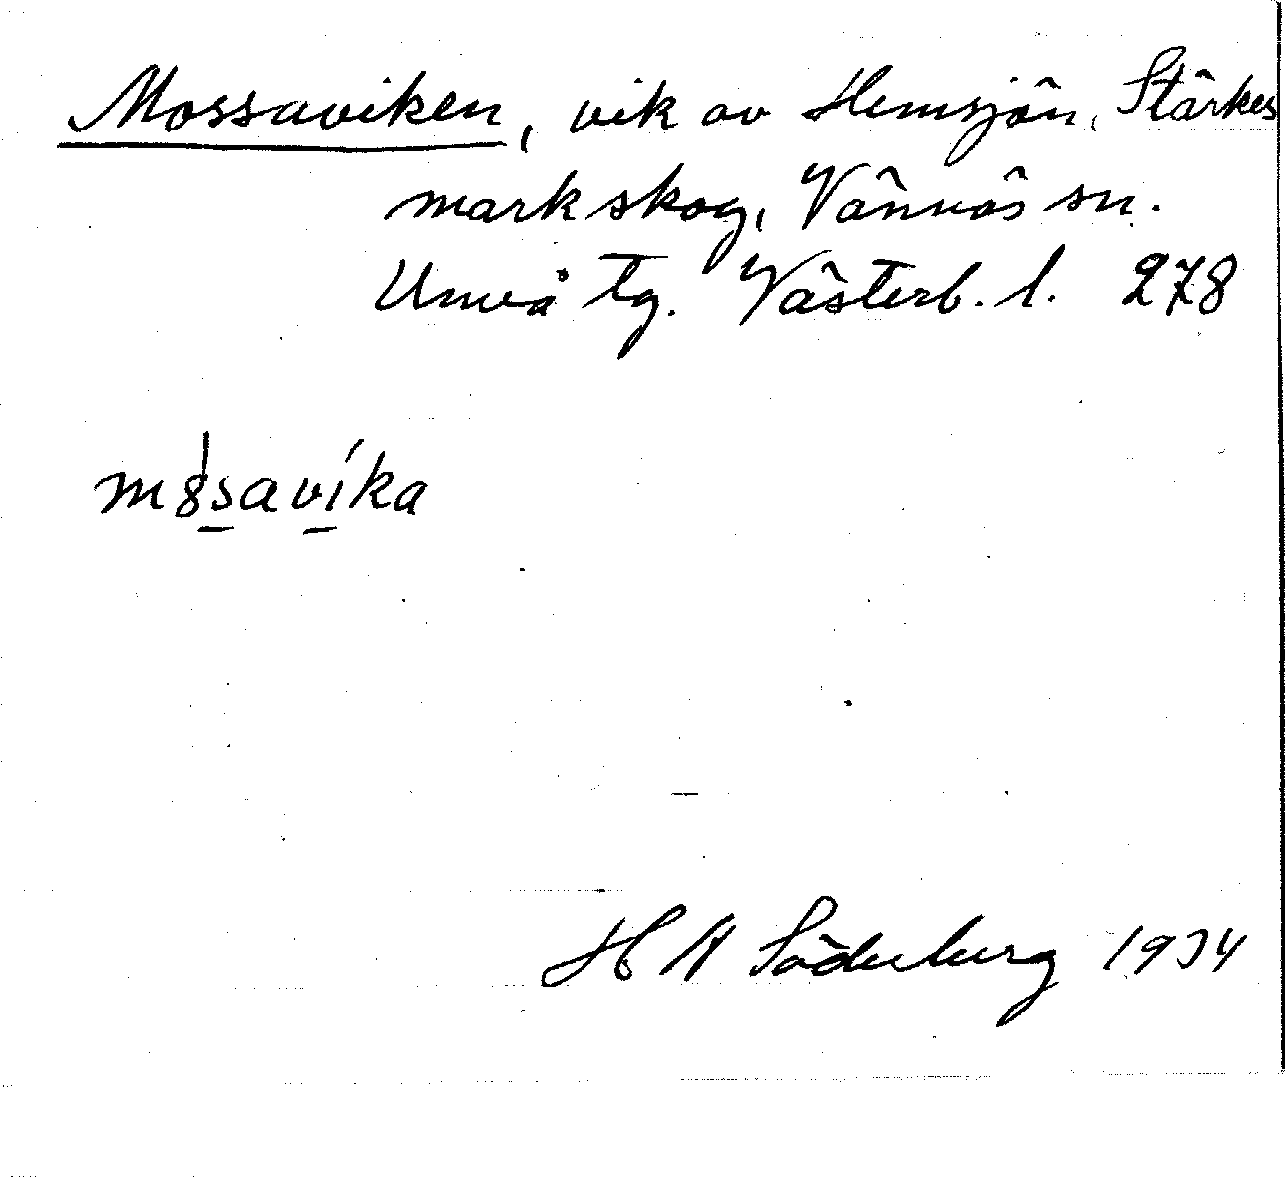 Mossaviken, vik av Hemsjön, Stärkes
mark skog, Vännäs sn.
Umeå tg. Västerb. l. 278
m8savíka
H A Söderberg 1934